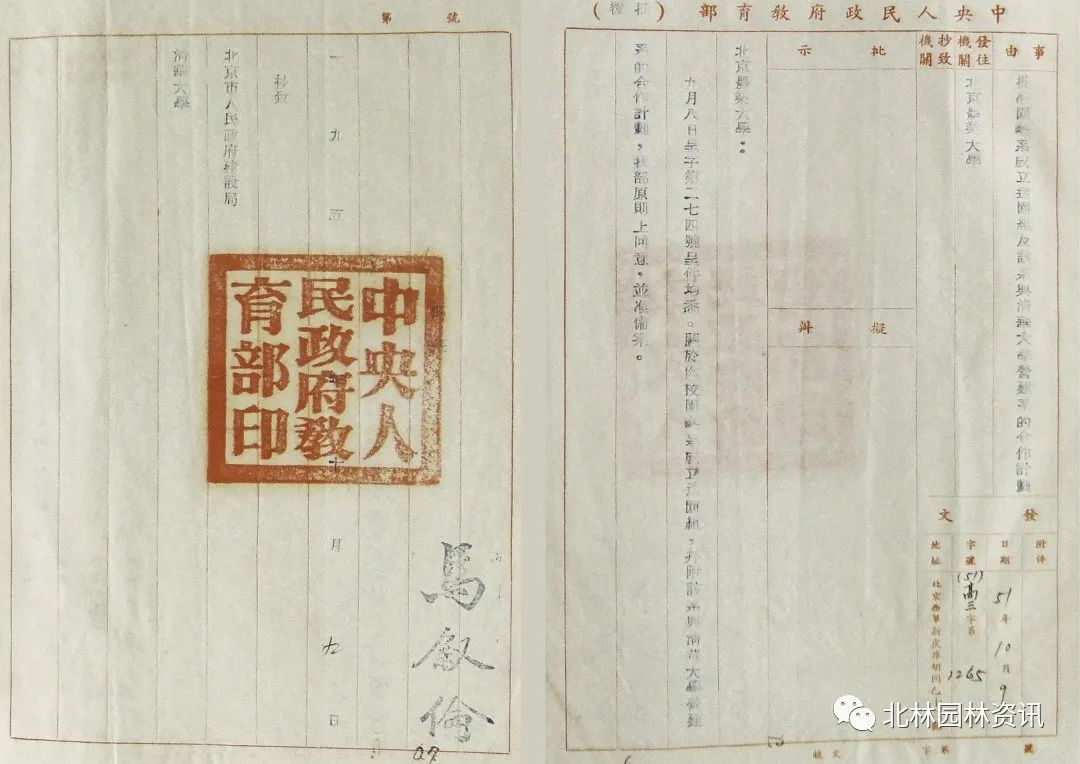 中央人民政府教育部（批復）
事由
批為園藝系成立造園組及請示與清華大學營建系的合作計劃
發往機關
抄致機關
北京農業大學
批示
擬辦
發文
附件
日期
51年10月9
字號
(51)高三字第1265
地址
北京農業大學：
九月八日呈字第二七四號呈件均悉。關於你校園藝系成立造園組，
系的合作計劃，我部原則上同意，並准備案。
號
第
抄致
北京市人民政府建設局
清華大學
一九五
月九日
中央人民政府教育部印
馬叙倫
07
北林园林资讯